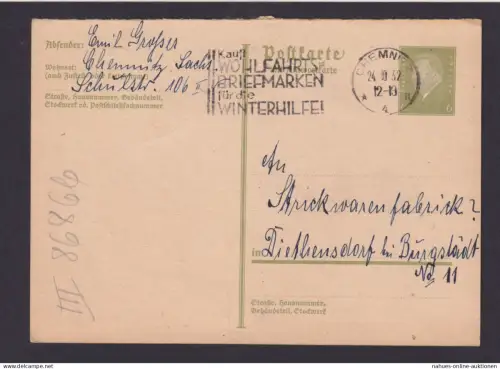 Absender: Emil Großer
Chemnitz, Sachs.
Wohnort:
(auch Zustell- oder Leitpostamt)
Schulstr. 106
Straße, Hausnummer, Gebäudeteil,
Stockwerk od. Postschließfachnummer
Postkarte
Kauft
WOHLFAHRTS-
BRIEFMARKEN
für die
WINTERHILFE!
CHEMNITZ
24 12-13
4
6
An
Strickwarenfabrick?
in Diethensdorf bei Burgstädt
No 11
Straße, Hausnummer,
Gebäudeteil, Stockwerk
III 86866
https://www.nahues-online-auktionen